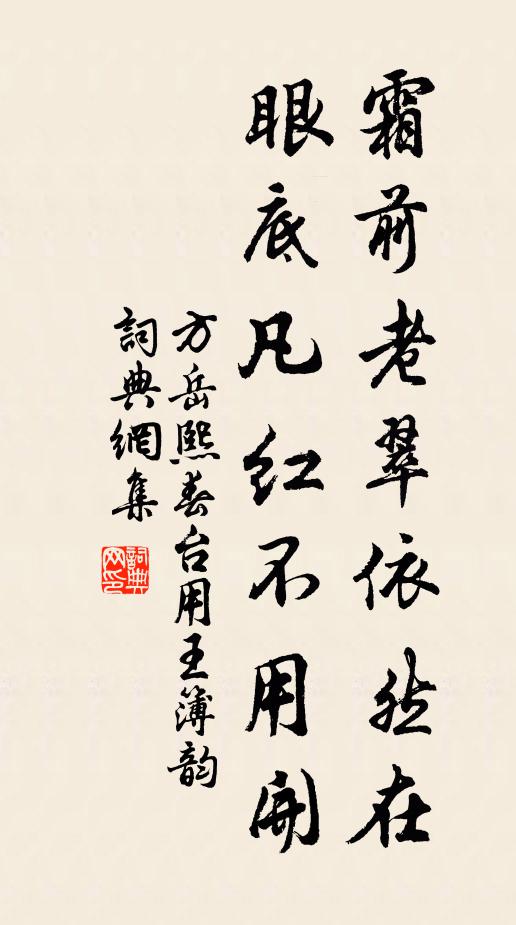 霜前老翠依然在
眼底凡红不用開
方岳熙春台用王簿韵
詞典網集
詞典网印